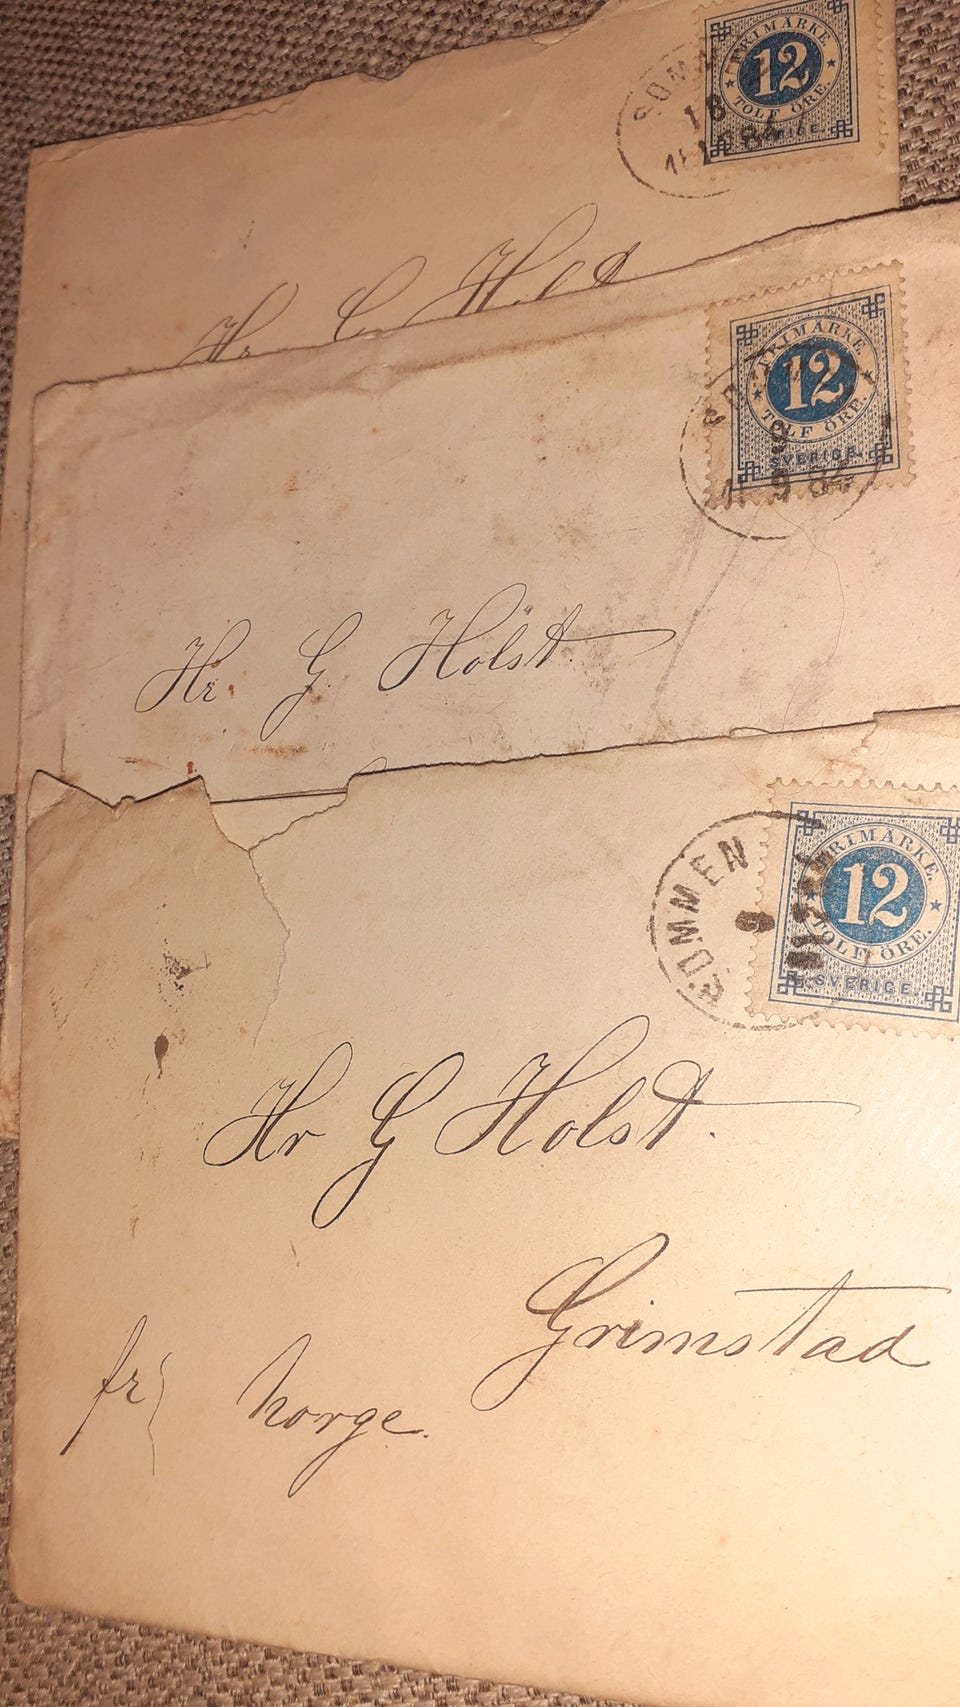 FRIMÄRKE.
12
TOLF ÖRE.
SVERIGE.
18
Hr G Holst
FRIMÄRKE.
12
TOLF ÖRE.
SVERIGE.
Hr. G Holst.
FRIMÄRKE.
12
TOLF ÖRE.
SVERIGE.
SOMMEN
9
Hr G Holst.
Grimstad
fr Norge.